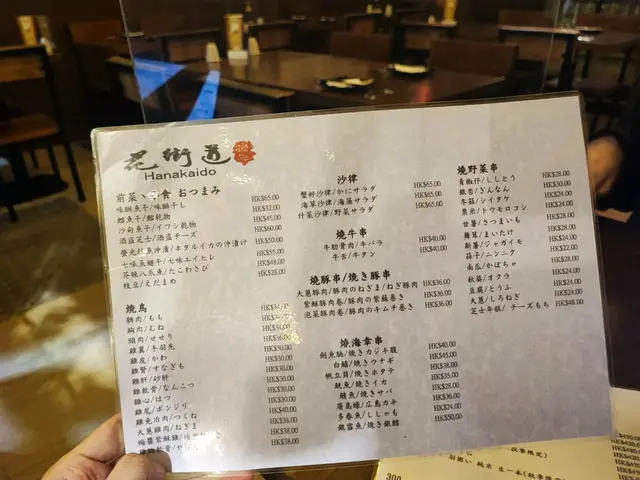 花街道
Hanakaido
前菜、 食 おつまみ
味醂魚干/味醂干し HK$65.00
鱈魚干/鱈乾物 HK$32.00
沙甸魚干/イワシ乾物 HK$45.00
酒盗芝士/酒盗チーズ HK$60.00
螢光魷魚沖漬/ホタルイカの沖漬け HK$50.00
七味魚翅干/七味エイヒレ HK$55.00
芥辣八爪魚/たこわさび HK$48.00
枝豆/えだまめ HK$28.00
焼鳥
髀肉/もも
胸肉/むね
頸肉/せせり HK$36.00
雞翼/手羽先
雞皮/かわ HK$30.00
雞腎/すなぎも HK$30.00
雞肝/砂肝 HK$30.00
雞軟骨/なんこつ HK$30.00
雞心/はつ HK$30.00
雞尾/ボンジリ HK$40.00
雞免治肉/つくね HK$38.00
大蔥雞肉/ねぎま HK$38.00
梅醬紫蘇雞/ HK$38.00
沙律
蟹籽沙律/かにサラダ HK$65.00
海草沙律/海藻サラダ HK$65.00
什菜沙律/野菜サラダ HK$65.00
焼牛串
牛肋骨肉/牛バラ HK$40.00
牛舌/牛タン HK$40.00
焼豚串/焼き豚串
大蔥豚肉/豚肉のねぎま/ねぎ豚肉 HK$36.00
紫蘇豚肉卷/豚肉の紫蘇巻き HK$36.00
泡菜豚肉卷/豚肉のキムチ巻き HK$36.00
焼海幸串
劍魚腩/焼きカジキ腹 HK$40.00
白鱔/焼きウナギ HK$45.00
帆立貝/焼きホタテ HK$38.00
魷魚/焼きイカ HK$35.00
鯖魚/焼きサバ HK$28.00
廣島蠔/広島カキ HK$36.00
多春魚/ししゃも HK$34.00
銀雪魚/焼き銀鱈 HK$50.00
焼野菜串
青椒仔/ししとう HK$28.00
銀杏/ぎんなん HK$30.00
冬菇/シイタケ HK$24.00
粟米/トウモロコシ HK$24.00
甘薯/さつまいも HK$28.00
舞茸/まいたけ HK$28.00
新薯/ジャガイモ HK$24.00
蒜子/ニンニク HK$22.00
南瓜/かぼちゃ HK$28.00
秋葵/オクラ HK$24.00
豆腐/とうふ HK$24.00
大蔥/しろねぎ HK$24.00
芝士年糕/チーズもち HK$48.00
300